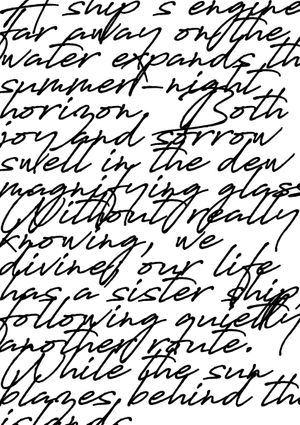 A ship's engine
far away on the
water expands th
summer-night
horizon. Both
joy and sorrow
swell in the dew
magnifying glass
Without really
knowing, we
divine; our life
has a sister ship
following quietly
another route.
While the sun
blazes behind th
islands